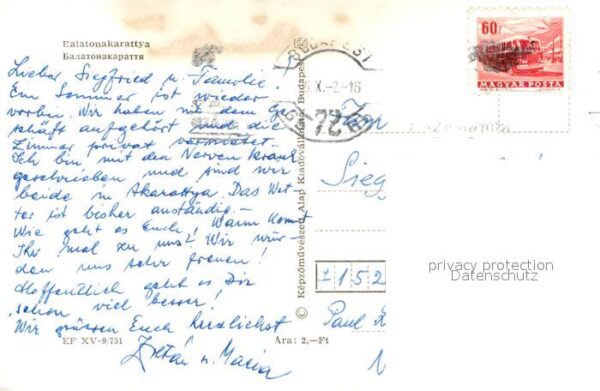 Balatonakarattya
Балатонакараття
Lieber Siegfried u. Familie!
Ein Sommer ist wieder
vorbei. Wir haben mit dem Ge-
schäft aufgehört und die
Zimmer privat vermietet.
Ich bin mit den Nerven krank
geschrieben und sind wir
beide in Akarattya. Das Wet-
ter ist bisher anständig.-
Wie geht es Euch? Wann kommt
Ihr mal zu uns? Wir wür-
den uns sehr freuen!
Hoffentlich geht es Dir
schon viel besser!
Wir grüssen Euch herzlichst
Zoltán u. Mária
EF XV-9/751
Ára: 2,—Ft
© Képzőművészeti Alap Kiadóvállalata, Budapest
BUDAPEST
X.-2.-16
72
60f
MAGYAR POSTA
Sieg
152
Paul
privacy protection
Datenschutz